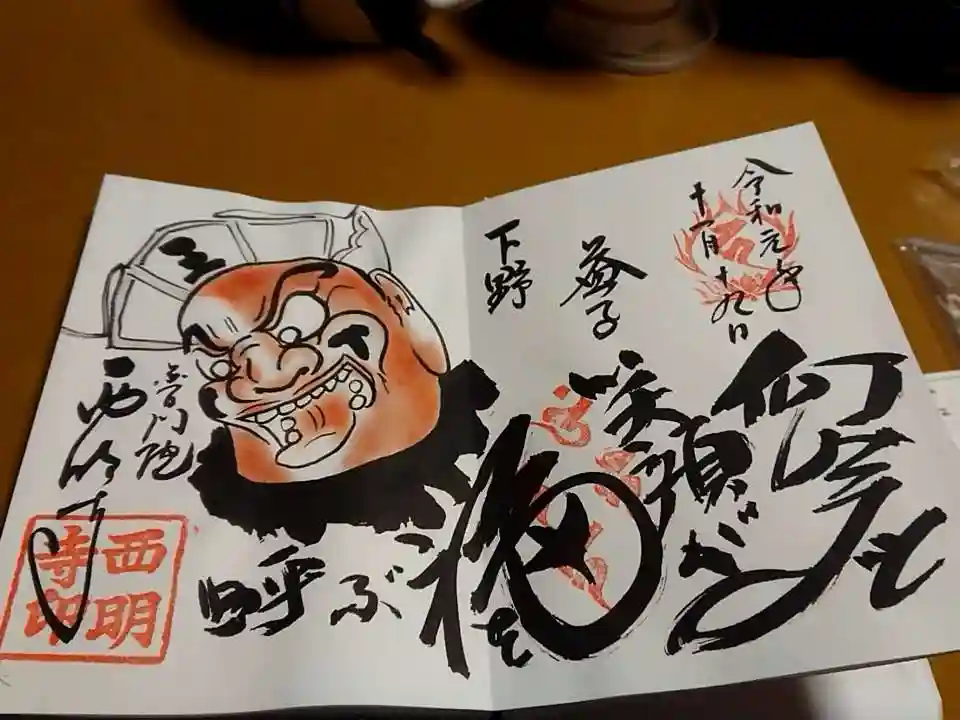 令和元年
十一月十九日
益子
下野
何時も
笑顔が
福を
呼ぶ
王
普門院
西明寺
西明
寺印